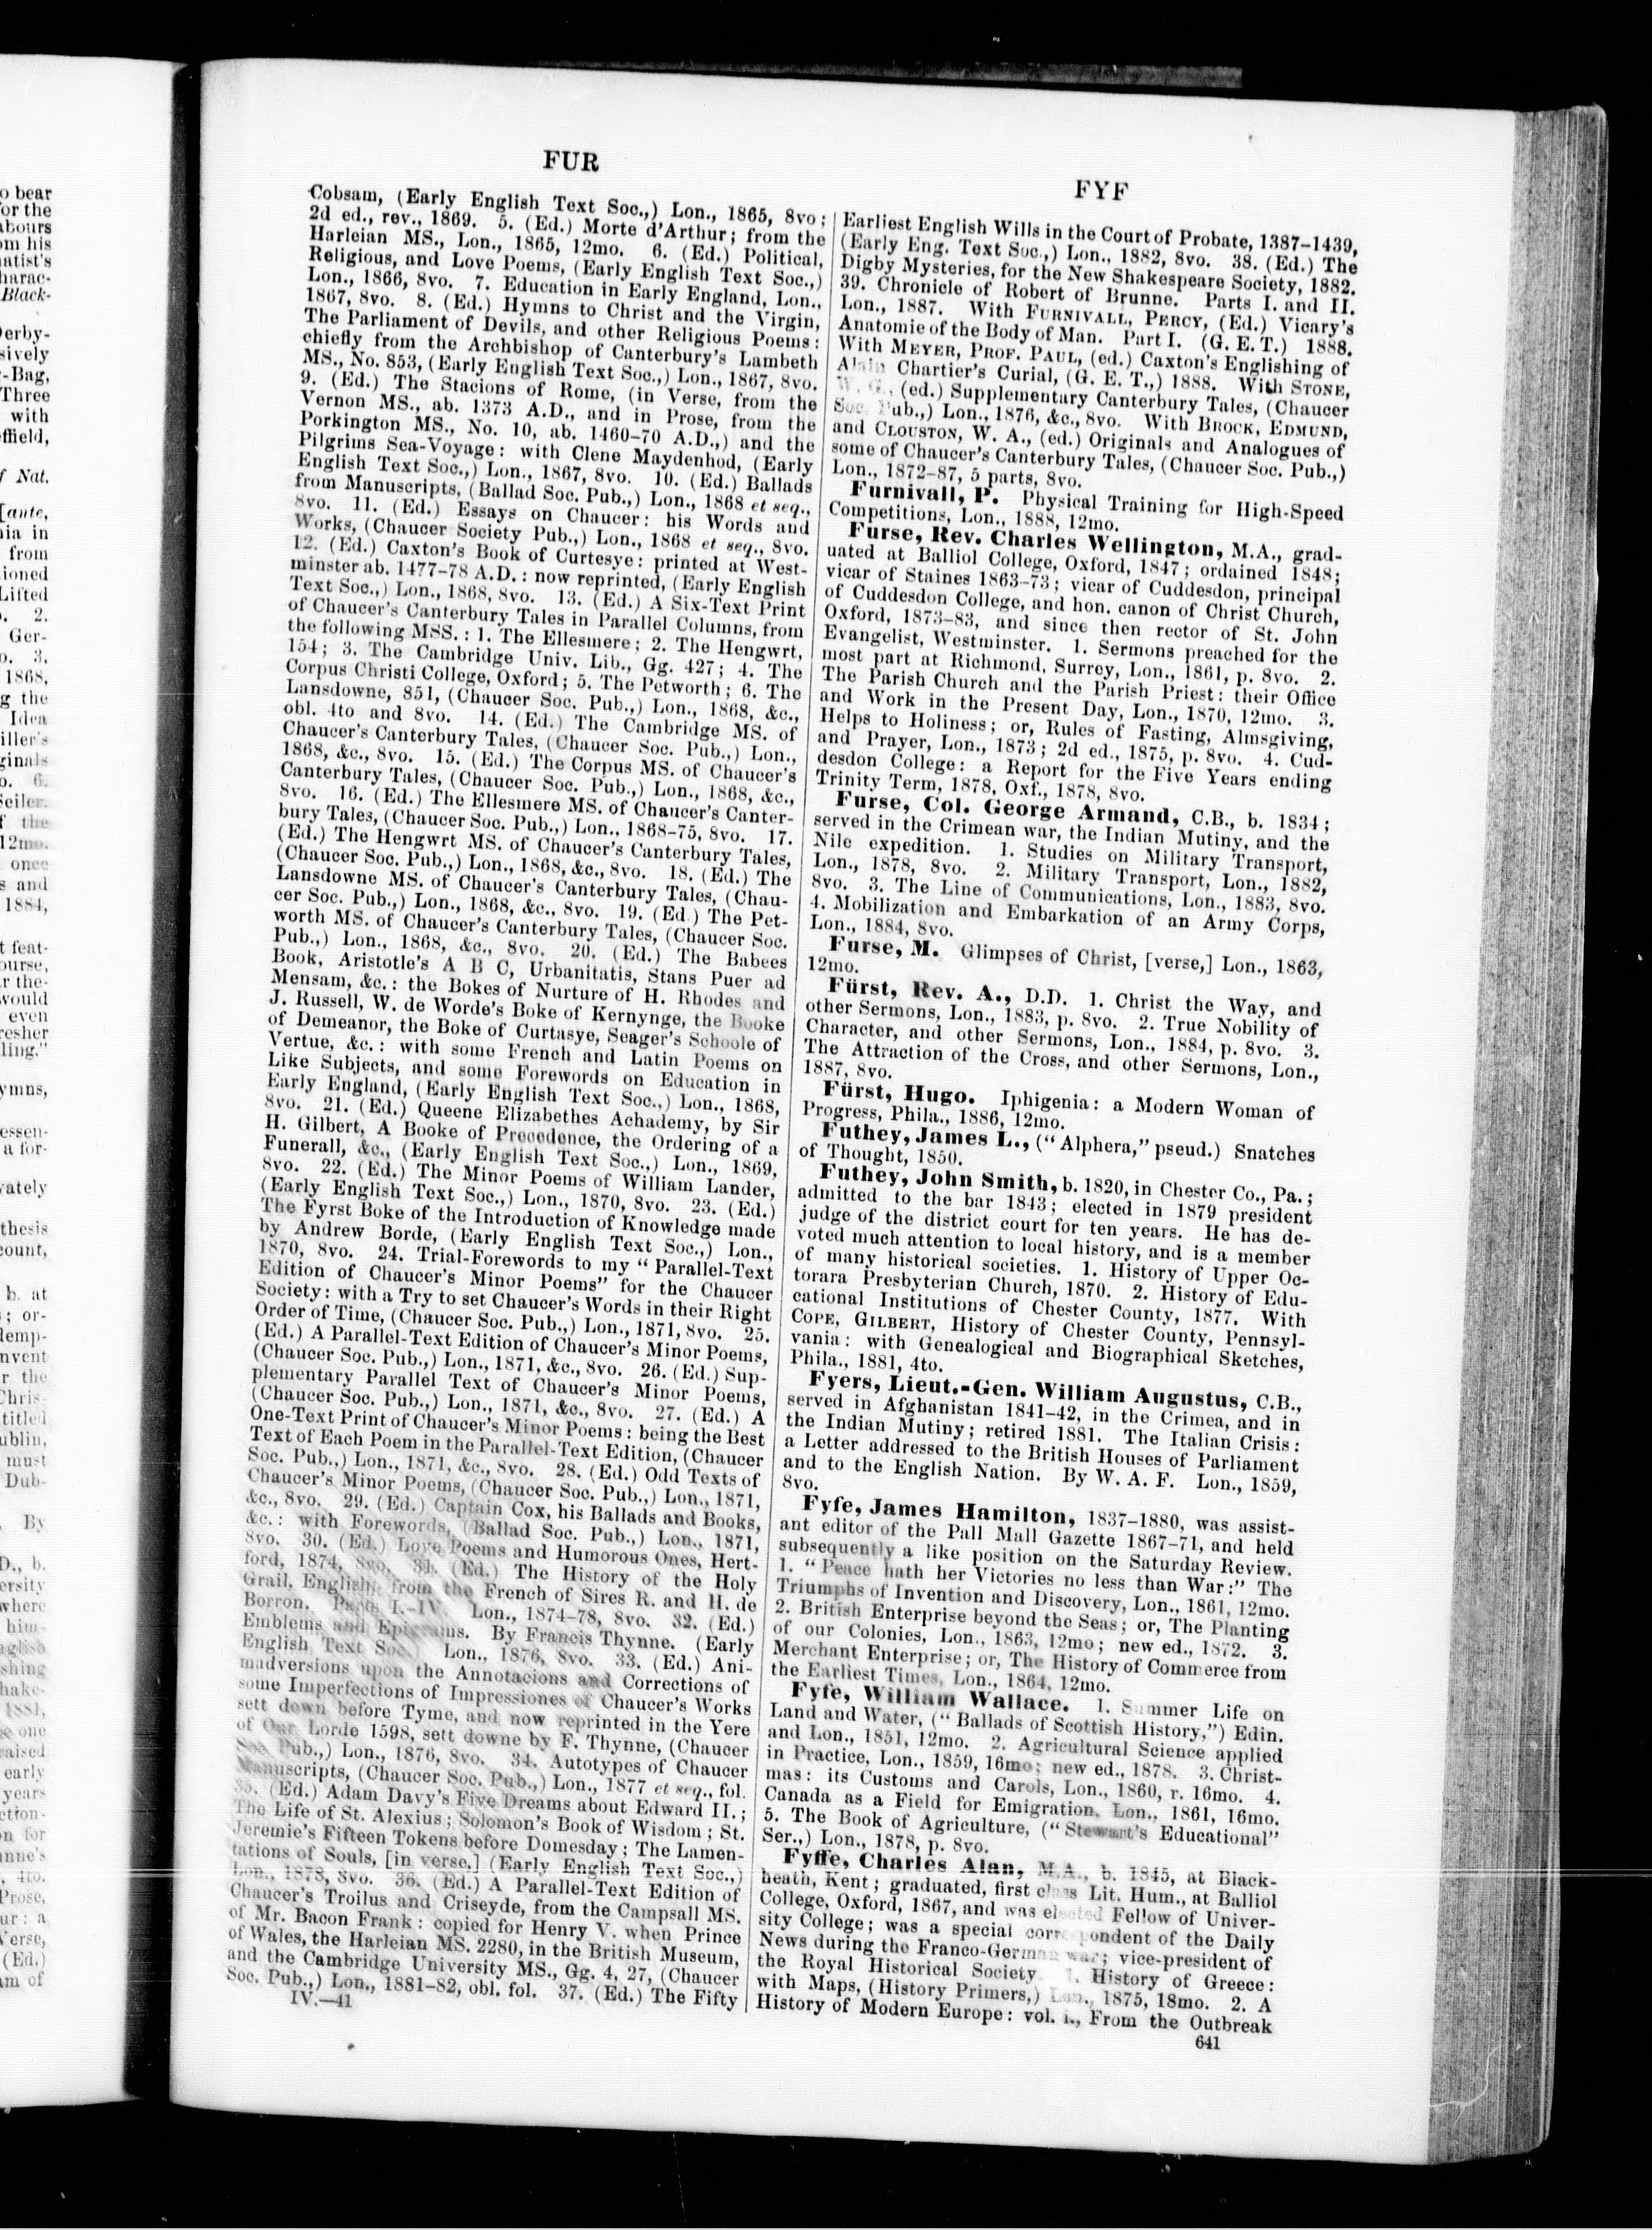 o bear
or the
abours
om his
atist's
harac-
Black-
Derby-
sively
-Bag,
Three
with
ffield,
f Nat.
[ante,
ia in
from
tioned
Lifted
2.
Ger-
o. 3.
1868,
g the
Idea
iller's
ginals
o. 6.
Seiler.
f the
12mo.
once
s and
1884,
t feat-
ourse,
r the-
would
even
resher
ling."
ymns,
essen-
a for-
vately
thesis
count,
b. at
; or-
demp-
nvent
r the
Chris-
titled
ublin,
must
Dub-
By
D., b.
ersity
where
him-
nglish
shing
hake-
1881,
se one
raised
early
years
ction-
on for
nne's
4to.
Prose,
ur: a
Verse,
(Ed.)
am of
FUR
Cobsam, (Early English Text Soc.,) Lon., 1865, 8vo;
2d ed., rev., 1869. 5. (Ed.) Morte d'Arthur; from the
Harleian MS., Lon., 1865, 12mo. 6. (Ed.) Political,
Religious, and Love Poems, (Early English Text Soc.,)
Lon., 1866, 8vo. 7. Education in Early England, Lon.,
1867, 8vo. 8. (Ed.) Hymns to Christ and the Virgin,
The Parliament of Devils, and other Religious Poems:
chiefly from the Archbishop of Canterbury's Lambeth
MS., No. 853, (Early English Text Soc.,) Lon., 1867, 8vo.
9. (Ed.) The Stacions of Rome, (in Verse, from the
Vernon MS., ab. 1373 A.D., and in Prose, from the
Porkington MS., No. 10, ab. 1460-70 A.D.,) and the
Pilgrims Sea-Voyage: with Clene Maydenhod, (Early
English Text Soc.,) Lon., 1867, 8vo. 10. (Ed.) Ballads
from Manuscripts, (Ballad Soc. Pub.,) Lon., 1868 et seq.,
8vo. 11. (Ed.) Essays on Chaucer: his Words and
Works, (Chaucer Society Pub.,) Lon., 1868 et seq., 8vo.
12. (Ed.) Caxton's Book of Curtesye: printed at West-
minster ab. 1477-78 A.D.: now reprinted, (Early English
Text Soc.,) Lon., 1868, 8vo. 13. (Ed.) A Six-Text Print
of Chaucer's Canterbury Tales in Parallel Columns, from
the following MSS.: 1. The Ellesmere; 2. The Hengwrt,
154; 3. The Cambridge Univ. Lib., Gg. 427; 4. The
Corpus Christi College, Oxford; 5. The Petworth; 6. The
Lansdowne, 851, (Chaucer Soc. Pub.,) Lon., 1868, &c.,
obl. 4to and 8vo. 14. (Ed.) The Cambridge MS. of
Chaucer's Canterbury Tales, (Chaucer Soc. Pub.,) Lon.,
1868, &c., 8vo. 15. (Ed.) The Corpus MS. of Chaucer's
Canterbury Tales, (Chaucer Soc. Pub.,) Lon., 1868, &c.,
8vo. 16. (Ed.) The Ellesmere MS. of Chaucer's Canter-
bury Tales, (Chaucer Soc. Pub.,) Lon., 1868-75, 8vo. 17.
(Ed.) The Hengwrt MS. of Chaucer's Canterbury Tales,
(Chaucer Soc. Pub.,) Lon., 1868, &c., 8vo. 18. (Ed.) The
Lansdowne MS. of Chaucer's Canterbury Tales, (Chau-
cer Soc. Pub.,) Lon., 1868, &c., 8vo. 19. (Ed.) The Pet-
worth MS. of Chaucer's Canterbury Tales, (Chaucer Soc.
Pub.,) Lon., 1868, &c., 8vo. 20. (Ed.) The Babees
Book, Aristotle's A B C, Urbanitatis, Stans Puer ad
Mensam, &c.: the Bokes of Nurture of H. Rhodes and
J. Russell, W. de Worde's Boke of Kernynge, the Booke
of Demeanor, the Boke of Curtasye, Seager's Schoole of
Vertue, &c.: with some French and Latin Poems on
Like Subjects, and some Forewords on Education in
Early England, (Early English Text Soc.,) Lon., 1868,
8vo. 21. (Ed.) Queene Elizabethes Achademy, by Sir
H. Gilbert, A Booke of Precedence, the Ordering of a
Funerall, &c., (Early English Text Soc.,) Lon., 1869,
8vo. 22. (Ed.) The Minor Poems of William Lander,
(Early English Text Soc.,) Lon., 1870, 8vo. 23. (Ed.)
The Fyrst Boke of the Introduction of Knowledge made
by Andrew Borde, (Early English Text Soc.,) Lon.,
1870, 8vo. 24. Trial-Forewords to my "Parallel-Text
Edition of Chaucer's Minor Poems" for the Chaucer
Society: with a Try to set Chaucer's Words in their Right
Order of Time, (Chaucer Soc. Pub.,) Lon., 1871, 8vo. 25.
(Ed.) A Parallel-Text Edition of Chaucer's Minor Poems,
(Chaucer Soc. Pub.,) Lon., 1871, &c., 8vo. 26. (Ed.) Sup-
plementary Parallel Text of Chaucer's Minor Poems,
(Chaucer Soc. Pub.,) Lon., 1871, &c., 8vo. 27. (Ed.) A
One-Text Print of Chaucer's Minor Poems: being the Best
Text of Each Poem in the Parallel-Text Edition, (Chaucer
Soc. Pub.,) Lon., 1871, &c., 8vo. 28. (Ed.) Odd Texts of
Chaucer's Minor Poems, (Chaucer Soc. Pub.,) Lon., 1871,
&c., 8vo. 29. (Ed.) Captain Cox, his Ballads and Books,
&c.: with Forewords, (Ballad Soc. Pub.,) Lon., 1871,
8vo. 30. (Ed.) Love Poems and Humorous Ones, Hert-
ford, 1874, 8vo. 31. (Ed.) The History of the Holy
Grail, English: from the French of Sires R. and H. de
Borron. Parts I.-IV. Lon., 1874-78, 8vo. 32. (Ed.)
Emblems and Epigrams. By Francis Thynne. (Early
English Text Soc. Lon., 1876, 8vo. 33. (Ed.) Ani-
madversions upon the Annotacions and Corrections of
some Imperfections of Impressiones of Chaucer's Works
sett down before Tyme, and now reprinted in the Yere
of Our Lorde 1598, sett downe by F. Thynne, (Chaucer
Soc. Pub.,) Lon., 1876, 8vo. 34. Autotypes of Chaucer
Manuscripts, (Chaucer Soc. Pub.,) Lon., 1877 et seq., fol.
35. (Ed.) Adam Davy's Five Dreams about Edward II.;
The Life of St. Alexius; Solomon's Book of Wisdom; St.
Jeremie's Fifteen Tokens before Domesday; The Lamen-
tations of Souls, [in verse,] (Early English Text Soc.,)
Lon., 1878, 8vo. 36. (Ed.) A Parallel-Text Edition of
Chaucer's Troilus and Criseyde, from the Campsall MS.
of Mr. Bacon Frank: copied for Henry V. when Prince
of Wales, the Harleian MS. 2280, in the British Museum,
and the Cambridge University MS., Gg. 4, 27, (Chaucer
Soc. Pub.,) Lon., 1881-82, obl. fol. 37. (Ed.) The Fifty
IV.—41
FYF
Earliest English Wills in the Court of Probate, 1387-1439,
(Early Eng. Text Soc.,) Lon., 1882, 8vo. 38. (Ed.) The
Digby Mysteries, for the New Shakespeare Society, 1882.
39. Chronicle of Robert of Brunne. Parts I. and II.
Lon., 1887. With FURNIVALL, PERCY, (Ed.) Vicary's
Anatomie of the Body of Man. Part I. (G. E. T.) 1888.
With MEYER, PROF. PAUL, (ed.) Caxton's Englishing of
Alain Chartier's Curial, (G. E. T.,) 1888. With STONE,
W. G., (ed.) Supplementary Canterbury Tales, (Chaucer
Soc. Pub.,) Lon., 1876, &c., 8vo. With BROCK, EDMUND,
and CLOUSTON, W. A., (ed.) Originals and Analogues of
some of Chaucer's Canterbury Tales, (Chaucer Soc. Pub.,)
Lon., 1872-87, 5 parts, 8vo.
Furnivall, P. Physical Training for High-Speed
Competitions, Lon., 1888, 12mo.
Furse, Rev. Charles Wellington, M.A., grad-
uated at Balliol College, Oxford, 1847; ordained 1848;
vicar of Staines 1863-73; vicar of Cuddesdon, principal
of Cuddesdon College, and hon. canon of Christ Church,
Oxford, 1873-83, and since then rector of St. John
Evangelist, Westminster. 1. Sermons preached for the
most part at Richmond, Surrey, Lon., 1861, p. 8vo. 2.
The Parish Church and the Parish Priest: their Office
and Work in the Present Day, Lon., 1870, 12mo. 3.
Helps to Holiness; or, Rules of Fasting, Almsgiving,
and Prayer, Lon., 1873; 2d ed., 1875, p. 8vo. 4. Cud-
desdon College: a Report for the Five Years ending
Trinity Term, 1878, Oxf., 1878, 8vo.
Furse, Col. George Armand, C.B., b. 1834;
served in the Crimean war, the Indian Mutiny, and the
Nile expedition. 1. Studies on Military Transport,
Lon., 1878, 8vo. 2. Military Transport, Lon., 1882,
8vo. 3. The Line of Communications, Lon., 1883, 8vo.
4. Mobilization and Embarkation of an Army Corps,
Lon., 1884, 8vo.
Furse, M. Glimpses of Christ, [verse,] Lon., 1863,
12mo.
Fürst, Rev. A., D.D. 1. Christ the Way, and
other Sermons, Lon., 1883, p. 8vo. 2. True Nobility of
Character, and other Sermons, Lon., 1884, p. 8vo. 3.
The Attraction of the Cross, and other Sermons, Lon.,
1887, 8vo.
Fürst, Hugo. Iphigenia: a Modern Woman of
Progress, Phila., 1886, 12mo.
Futhey, James L., ("Alphera," pseud.) Snatches
of Thought, 1850.
Futhey, John Smith, b. 1820, in Chester Co., Pa.;
admitted to the bar 1843; elected in 1879 president
judge of the district court for ten years. He has de-
voted much attention to local history, and is a member
of many historical societies. 1. History of Upper Oc-
torara Presbyterian Church, 1870. 2. History of Edu-
cational Institutions of Chester County, 1877. With
COPE, GILBERT, History of Chester County, Pennsyl-
vania: with Genealogical and Biographical Sketches,
Phila., 1881, 4to.
Fyers, Lieut.-Gen. William Augustus, C.B.,
served in Afghanistan 1841-42, in the Crimea, and in
the Indian Mutiny; retired 1881. The Italian Crisis:
a Letter addressed to the British Houses of Parliament
and to the English Nation. By W. A. F. Lon., 1859,
8vo.
Fyfe, James Hamilton, 1837-1880, was assist-
ant editor of the Pall Mall Gazette 1867-71, and held
subsequently a like position on the Saturday Review.
1. "Peace hath her Victories no less than War:" The
Triumphs of Invention and Discovery, Lon., 1861, 12mo.
2. British Enterprise beyond the Seas; or, The Planting
of our Colonies, Lon., 1863, 12mo; new ed., 1872. 3.
Merchant Enterprise; or, The History of Commerce from
the Earliest Times, Lon., 1864, 12mo.
Fyfe, William Wallace. 1. Summer Life on
Land and Water, ("Ballads of Scottish History,") Edin.
and Lon., 1851, 12mo. 2. Agricultural Science applied
in Practice, Lon., 1859, 16mo; new ed., 1878. 3. Christ-
mas: its Customs and Carols, Lon., 1860, r. 16mo. 4.
Canada as a Field for Emigration, Lon., 1861, 16mo.
5. The Book of Agriculture, ("Stewart's Educational"
Ser.,) Lon., 1878, p. 8vo.
Fyffe, Charles Alan, M.A., b. 1845, at Black-
heath, Kent; graduated, first class Lit. Hum., at Balliol
College, Oxford, 1867, and was elected Fellow of Univer-
sity College; was a special correspondent of the Daily
News during the Franco-German war; vice-president of
the Royal Historical Society 1. History of Greece:
with Maps, (History Primers,) Lon., 1875, 18mo. 2. A
History of Modern Europe: vol. i., From the Outbreak
641